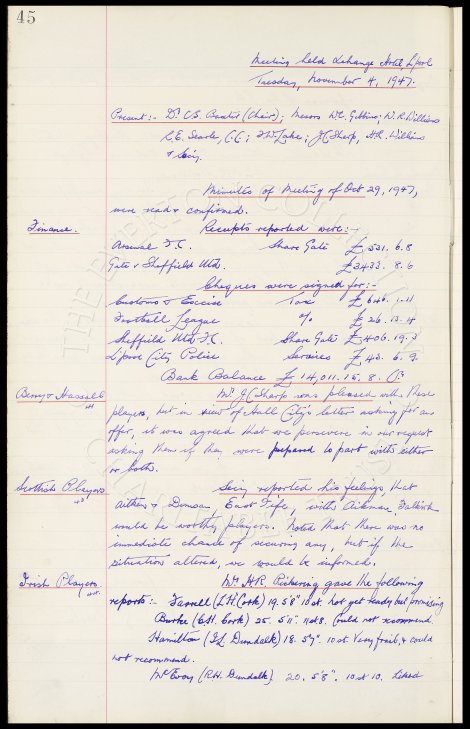 45
Meeting held Exchange Hotel, L'pool
Tuesday, November 4, 1947.
Present:- Dr. C.S. Baxter (Chair); Messrs W.C. Gibbins; W.R. Williams
R.E. Searle, C.C.; F.W. Lake; J.C. Sharp, A.R. Williams
& Secy.
Minutes of Meeting of Oct 29, 1947,
were read & confirmed.
Finance. Receipts reported were:-
Arsenal F.C. Share Gate £531. 6. 8
Gate v Sheffield Utd. £3433. 8. 6
Cheques were signed for:-
Customs & Excise Tax £646. 1. 11
Football League % £26. 13. 4
Sheffield Utd F.C. Share Gate £406. 19. 3
L'pool City Police Services £43. 6. 9.
Bank Balance £14,011. 15. 8.
Berry & Hassall Mr. J.C. Sharp was pleased with these
players, but in view of Hull City's letter asking for an
offer, it was agreed that we persevere in our request
asking them if they were prepared to part with either
or both.
Scottish Players Secy reported his feelings, that
Aitken & Duncan East Fife, with Aikman, Falkirk
would be worthy players. Noted that there was no
immediate chance of securing any, but if the
situation altered, we would be informed.
Irish Players Mr. H.R. Pickering gave the following
reports:- Farrell (I.H. Cork) 19. 5'8" 10st. not yet ready but promising
Burke (C.H. Cork) 25. 5'11". 11st 8. Could not recommend
Hamilton (I.L. Dundalk) 18. 5'7". 10st Very frail, & could
not recommend.
McEvoy (R.H. Dundalk). 20. 5'8". 10st 10. Liked